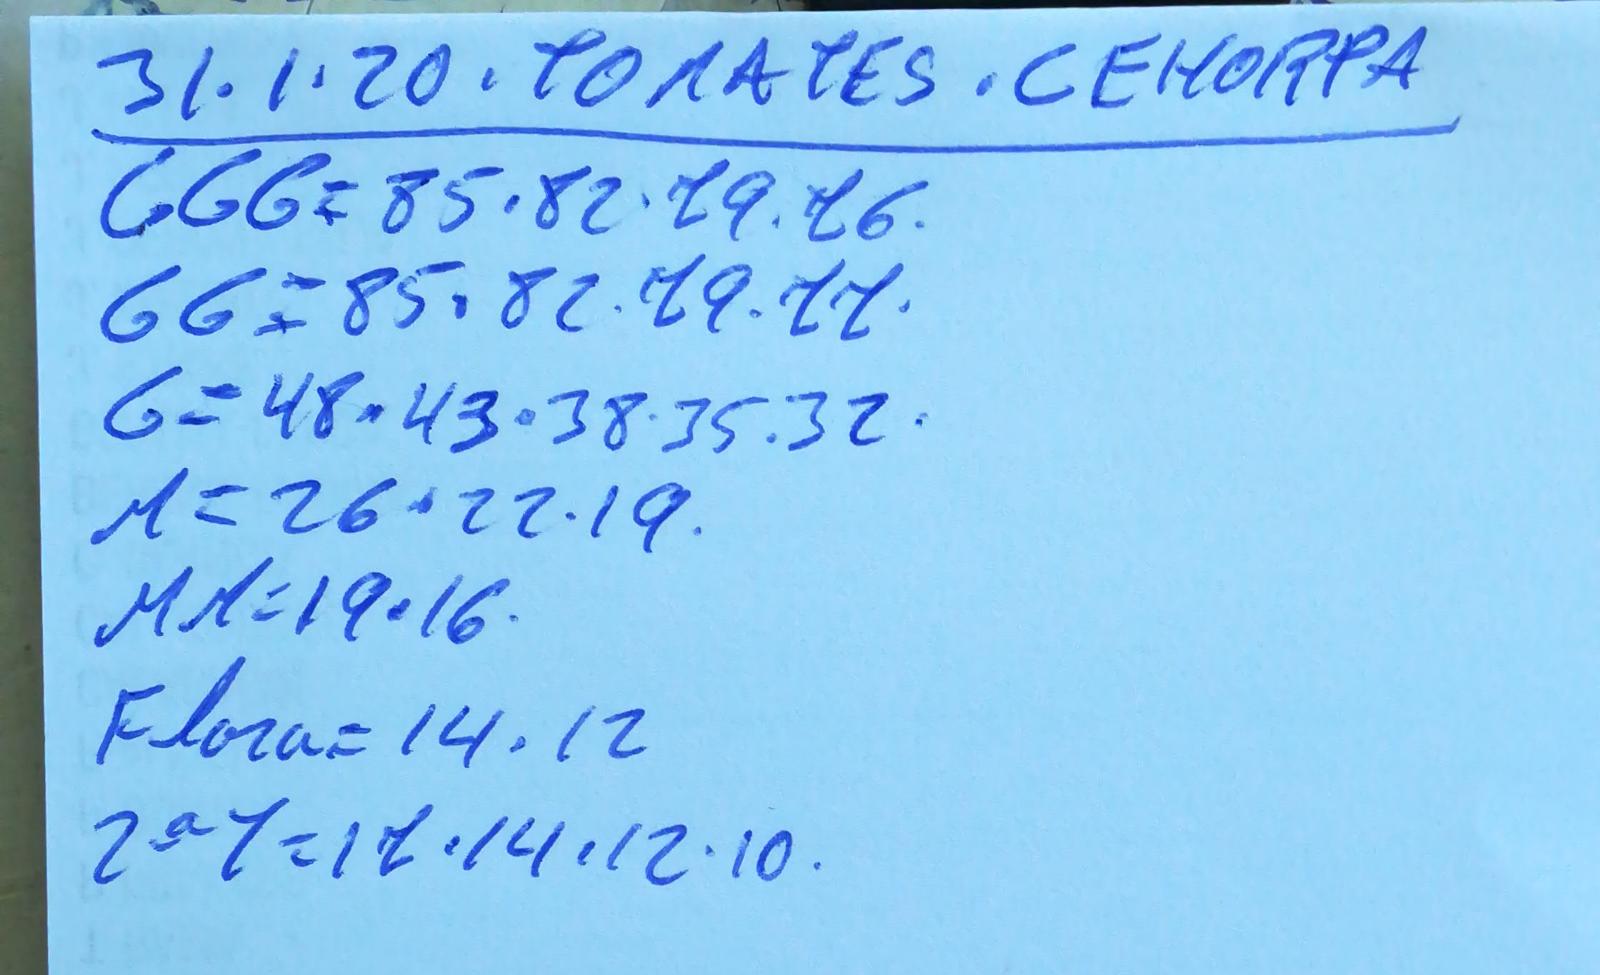 31.1.20.TOMATES.CEHORPA
GGG=85.82.79.76.
GG=85.82.79.77.
G=48.43.38.35.32.
M=26.22.19.
MM=19.16.
Flora=14.12
2ªT=17.14.12.10.